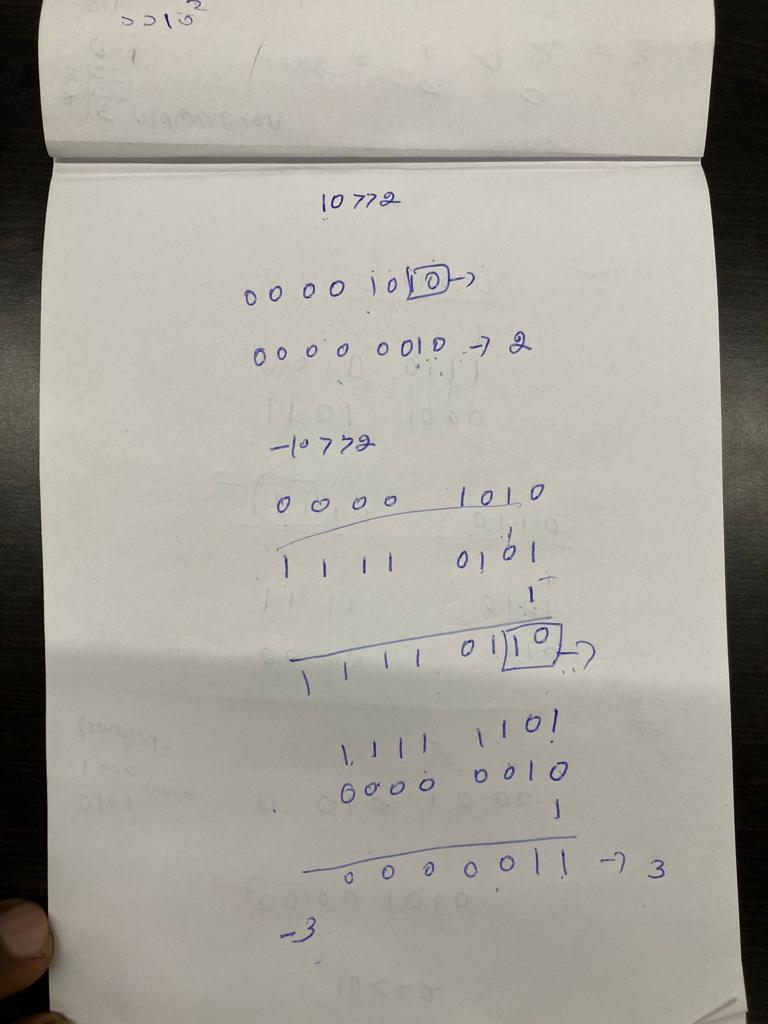 0010²
10>>2
0000 1010 →
0000 0010 → 2
-10>>2
0000 1010
1
1111 0101
1
1111 0110 →
1111 1101
0000 0010
1
0 0 0 0 0 1 1 → 3
-3